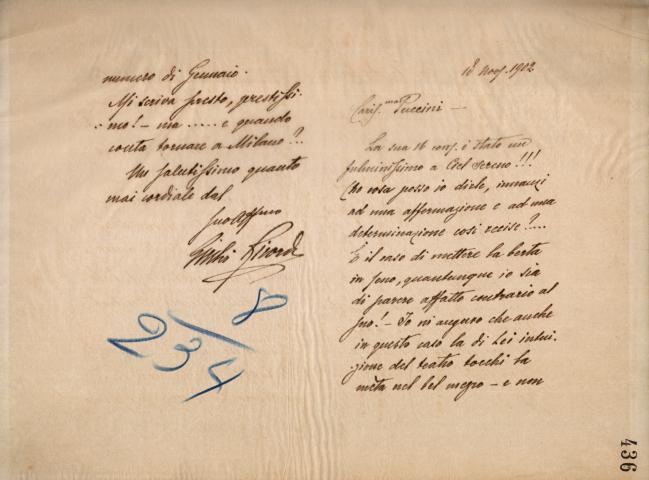 18 Nov. 1902
Cariss.mo Puccini —
La sua 16 corr. è stato un
fulminissimo a Ciel sereno!!!
Che cosa posso io dirle, innanzi
ad una affermazione e ad una
determinazione così recise?....
È il caso di mettere la berta
in seno, quantunque io sia
di parere affatto contrario al
suo! — Io mi auguro che anche
in questo caso la di Lei intui-
zione del teatro tocchi la
meta nel bel mezzo — e non
numero di Gennaio.
Mi scriva presto, prestissi-
mo! — ma ..... e quando
conta tornare a Milano?..
Un salutissimo quanto
mai cordiale dal
suo Aff.mo
Giulio Ricordi
8
23/4
436